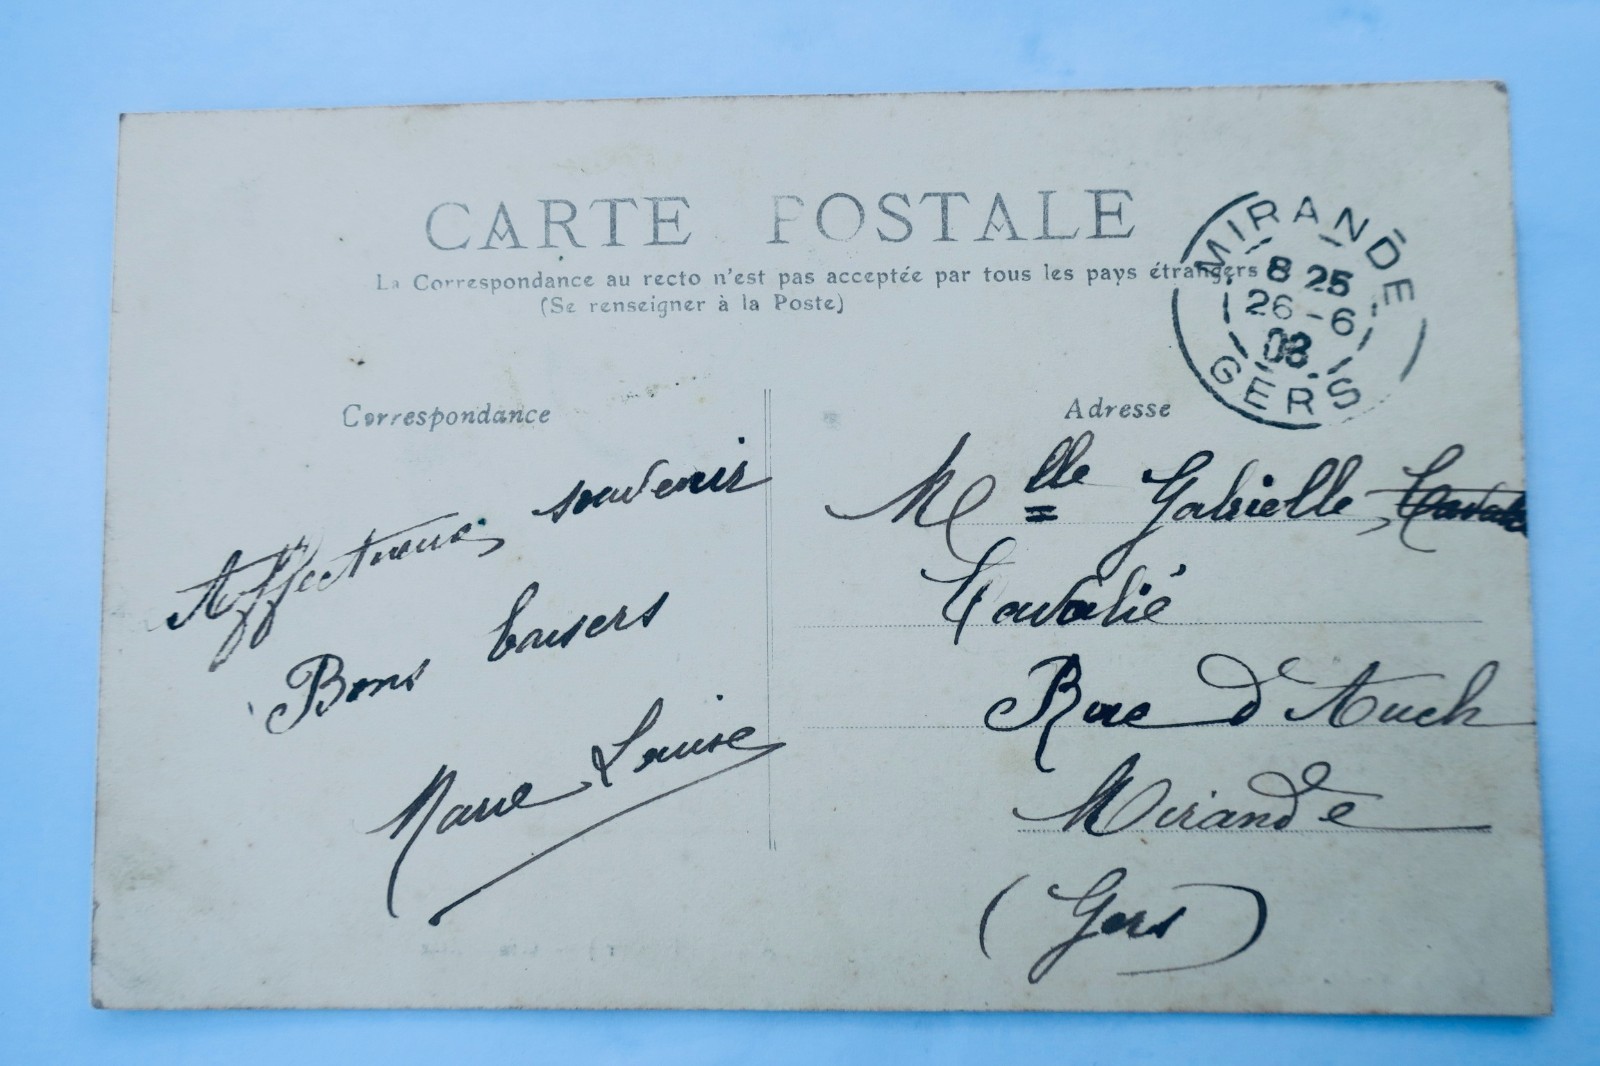 CARTE POSTALE
La Correspondance au recto n'est pas acceptée par tous les pays étrangers
(Se renseigner à la Poste)
MIRANDE
8 25
26 - 6
08
GERS
Correspondance
Affectueux souvenir
Bons baisers
Marie Louise
Adresse
Mlle Gabrielle
Cavalié
Rue d'Auch
Mirande
(Gers)